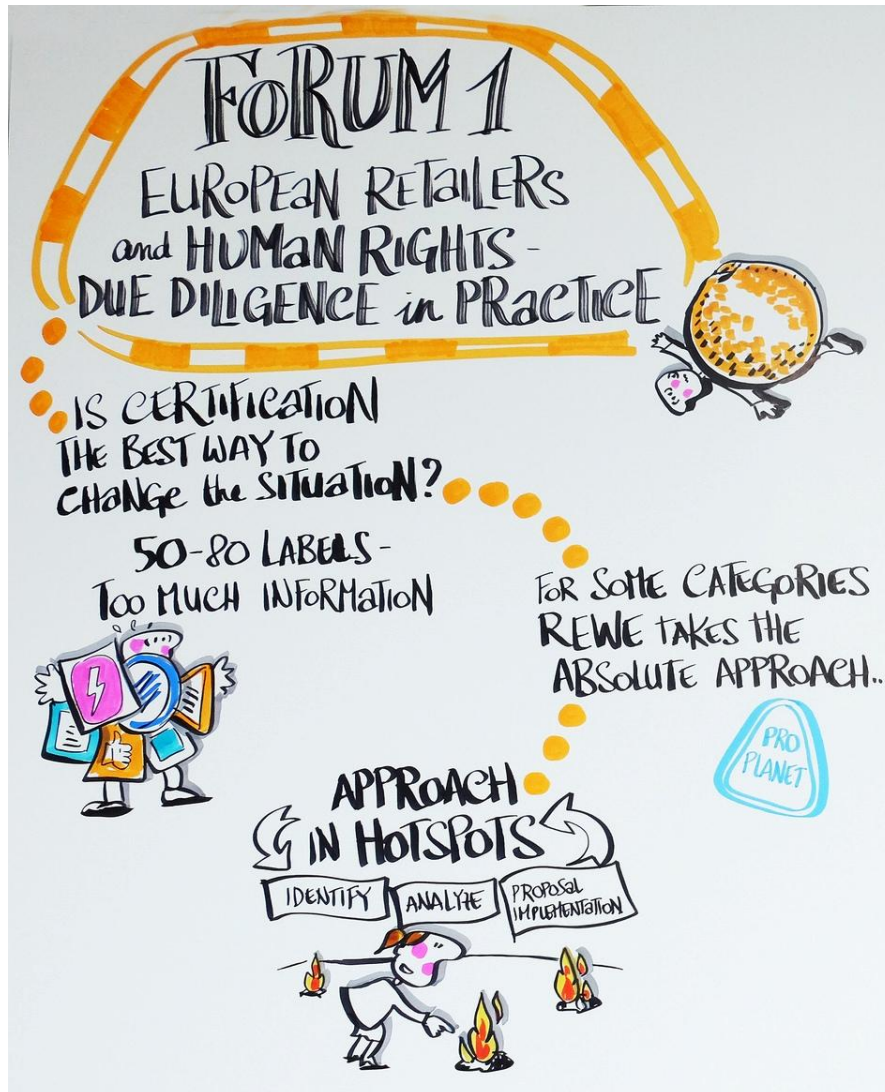 FORUM 1
EUROPEAN RETAILERS
and HUMAN RIGHTS -
DUE DILIGENCE in PRACTICE
IS CERTIFICATION
THE BEST WAY TO
CHANGE the SITUATION?
50-80 LABELS -
TOO MUCH INFORMATION
FOR SOME CATEGORIES
REWE TAKES THE
ABSOLUTE APPROACH..
PRO
PLANET
APPROACH
IN HOTSPOTS
IDENTIFY
ANALYZE
PROPOSAL
IMPLEMENTATION